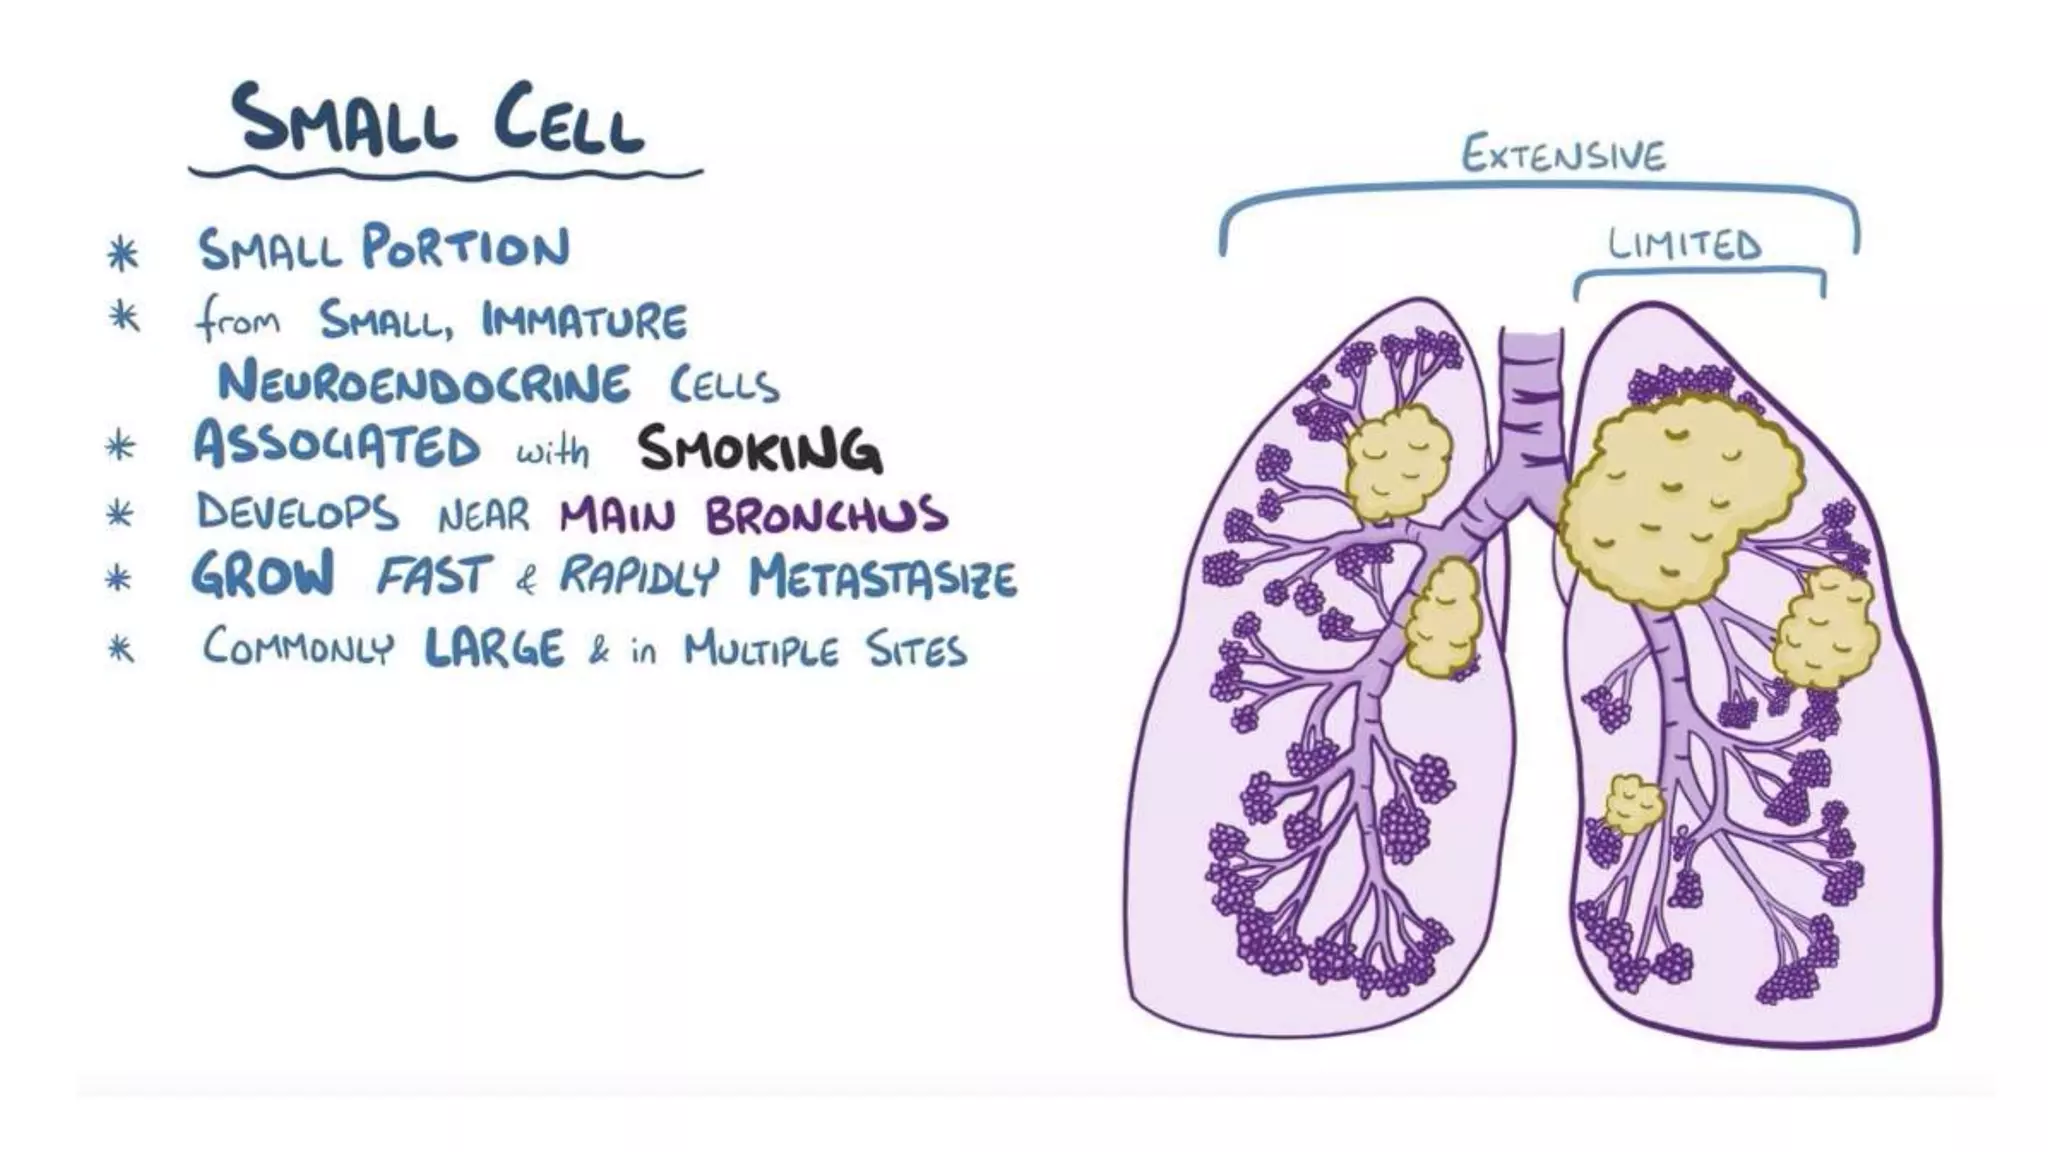 SMALL CELL
* SMALL PORTION
* from SMALL, IMMATURE
NEUROENDOCRINE CELLS
* ASSOCIATED with SMOKING
* DEVELOPS NEAR MAIN BRONCHUS
* GROW FAST & RAPIDLY METASTASIZE
* COMMONLY LARGE & in MULTIPLE SITES
EXTENSIVE
LIMITED